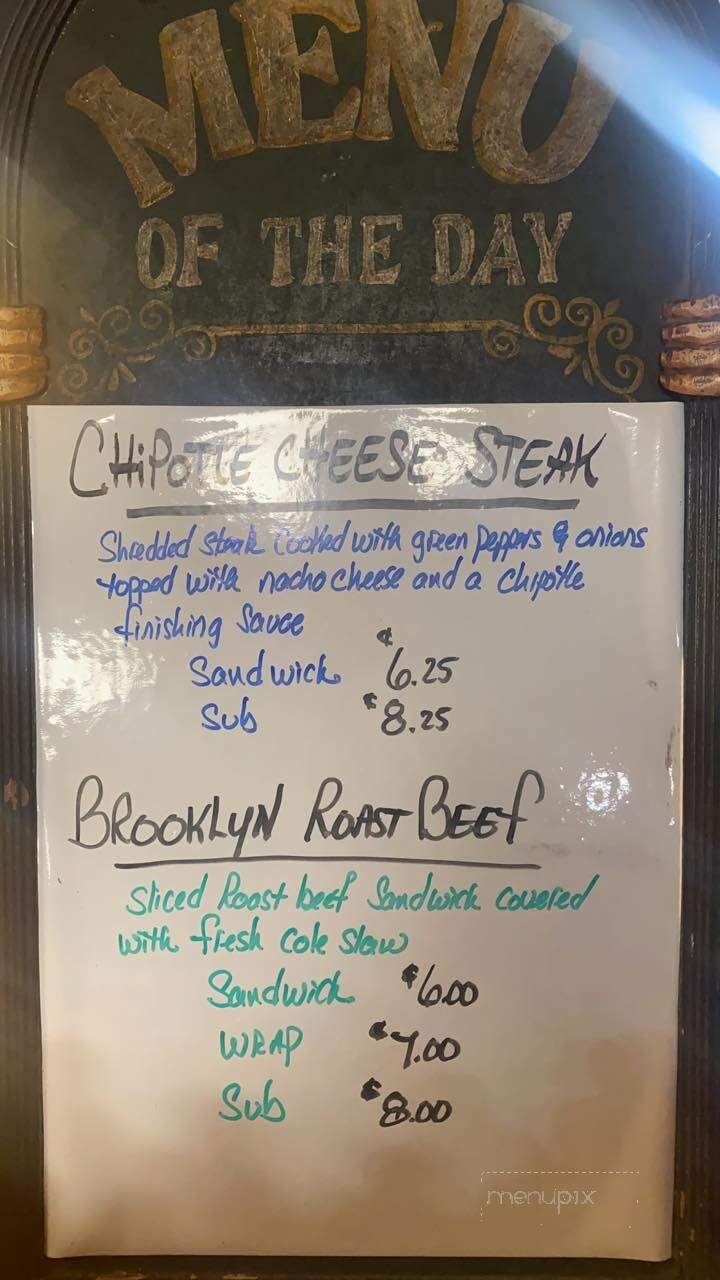 MENU
OF THE DAY
CHiPOTLE CHEESE STEAK
Shredded steak cooked with green peppers & onions
topped with nacho cheese and a chipotle
finishing sauce
Sandwich $6.25
Sub $8.25
BROOKLYN ROAST BEEf
Sliced Roast beef Sandwich covered
with fresh cole slaw
Sandwich $6.00
WRAP $7.00
Sub $8.00
menupix